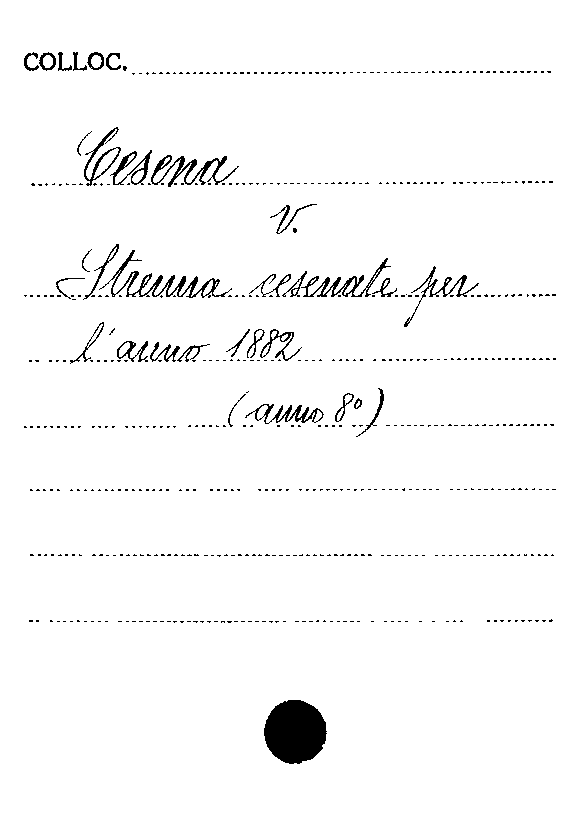 COLLOC.
Cesena
v.
Strenna cesenate per
l'anno 1882
(anno 8º)